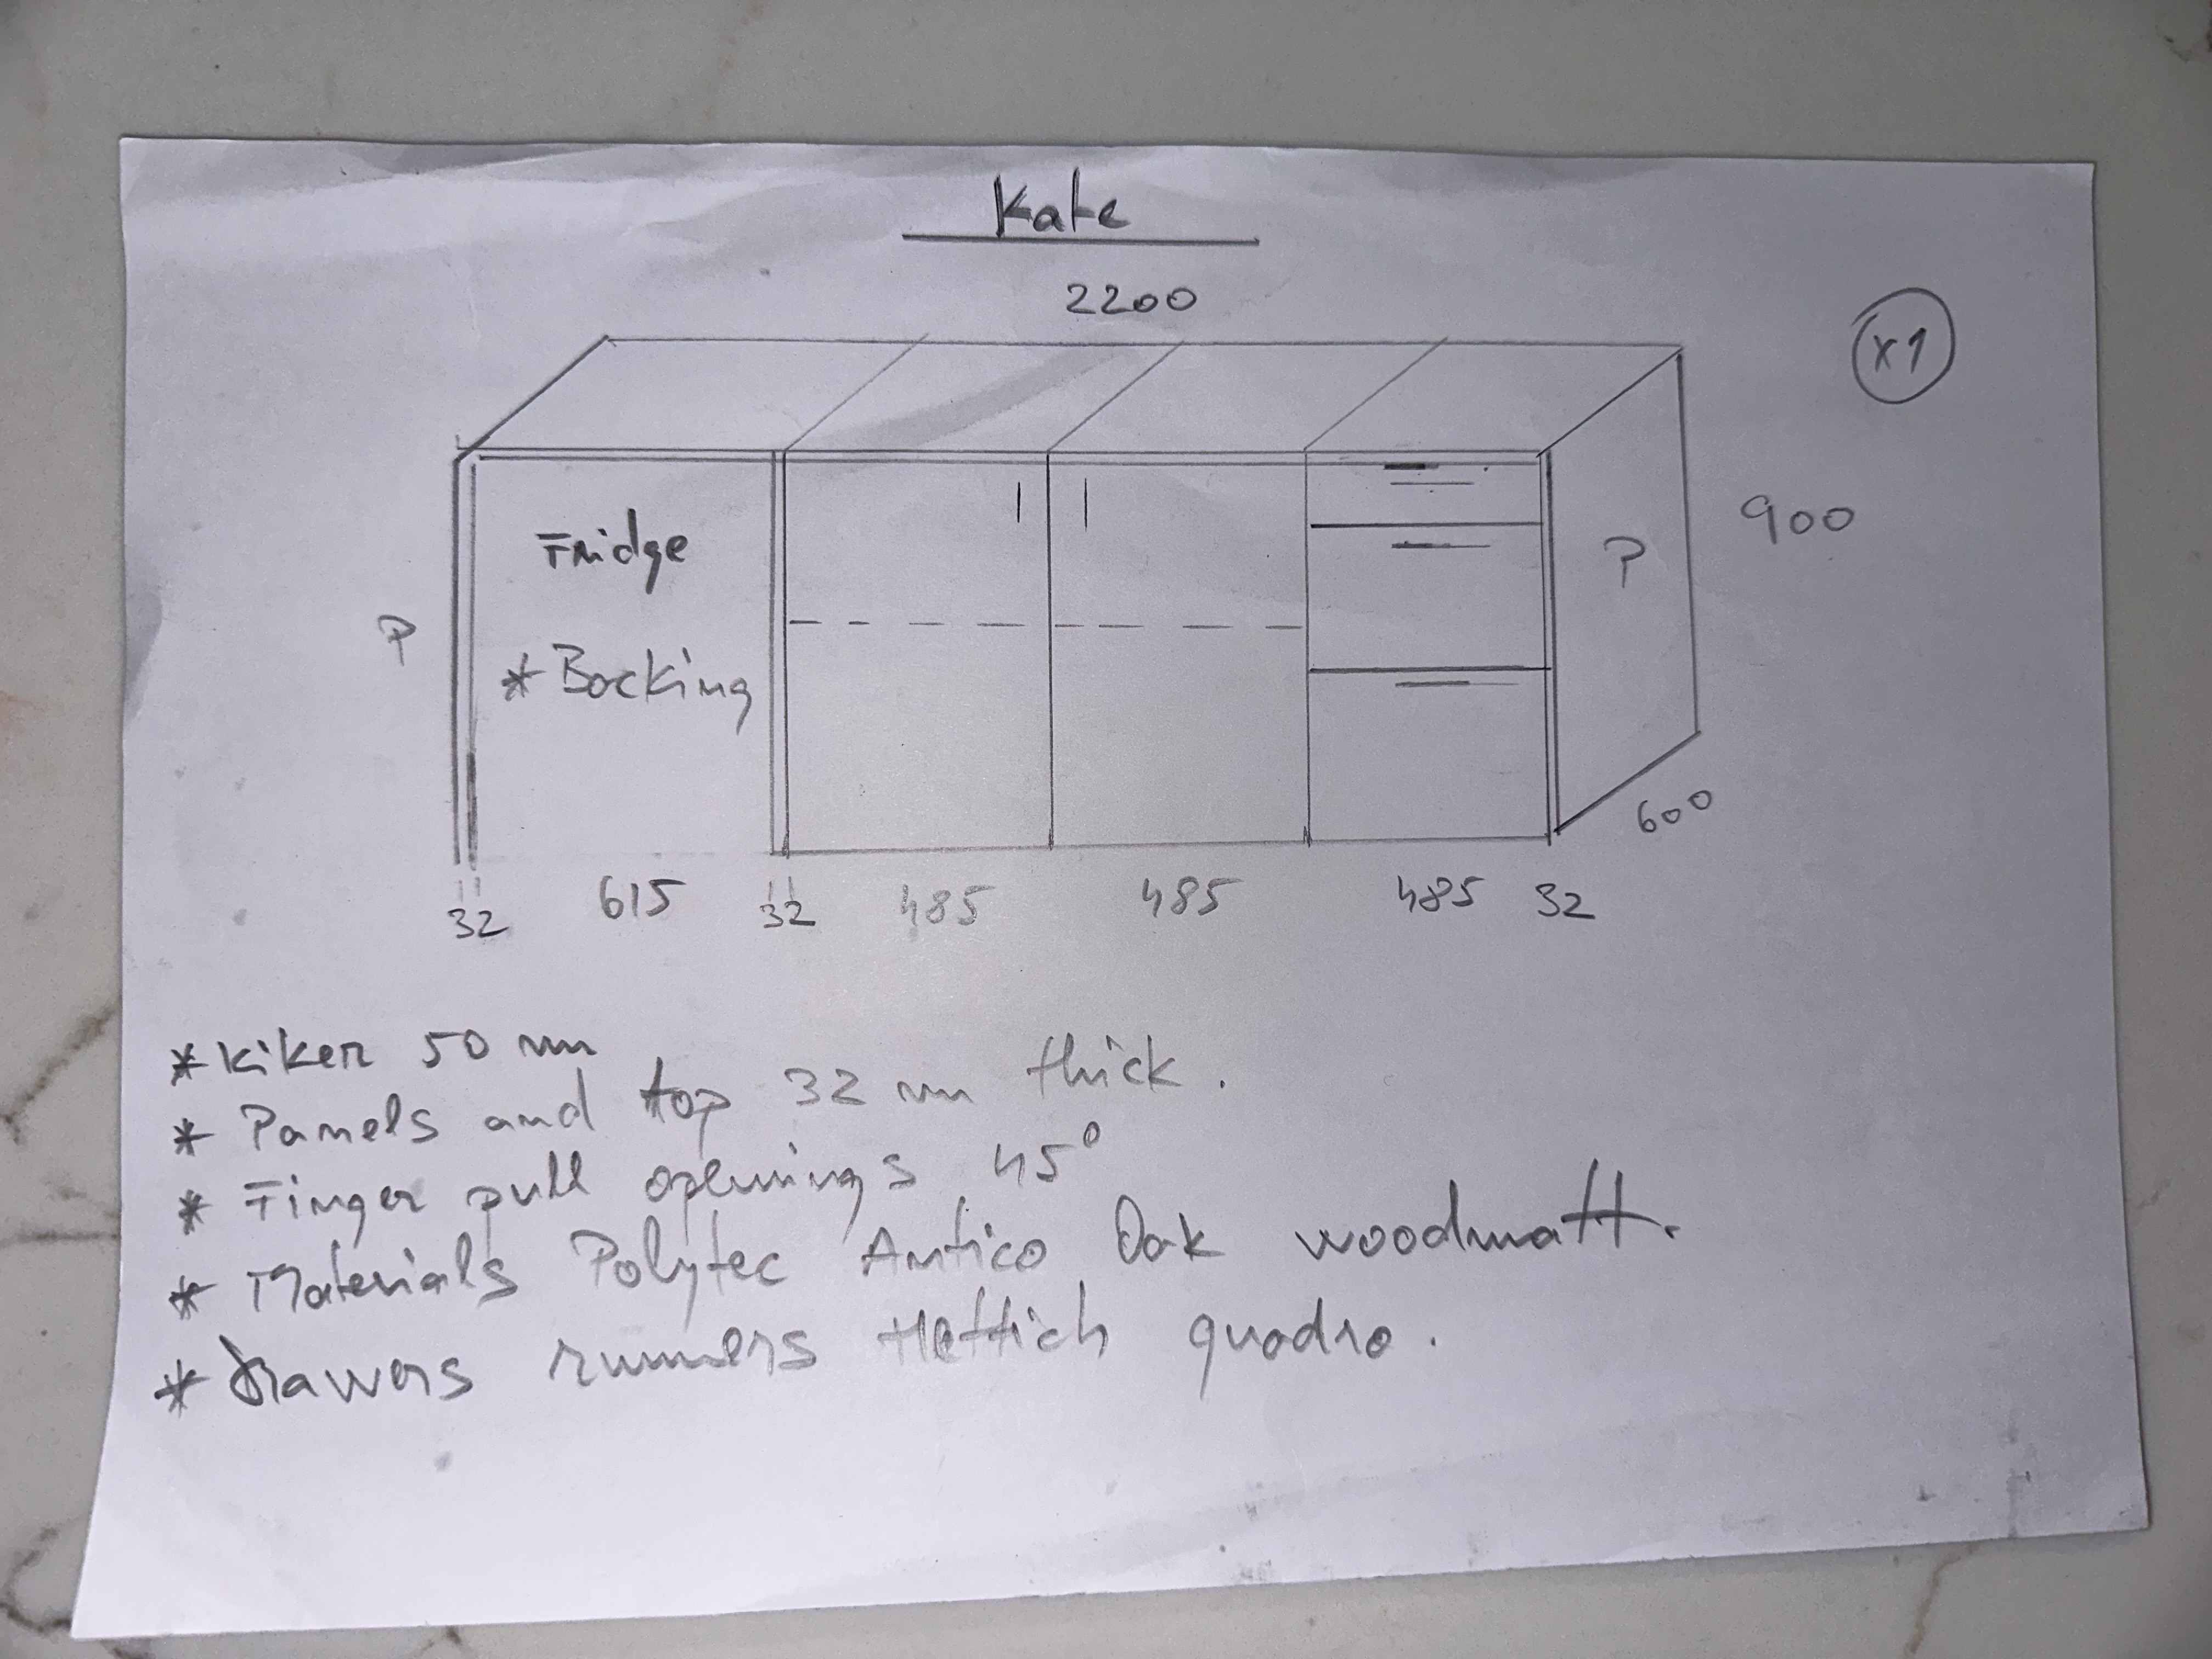 Kate
2200
x1
900
P
Fridge
* Backing
P
600
32 615 32 485 485 485 32
* Kiker 50 mm
* Panels and top 32 mm thick.
* Finger pull openings 45°
* Materials Polytec Antico Oak woodmatt.
* Drawers runners Hettich quadro.